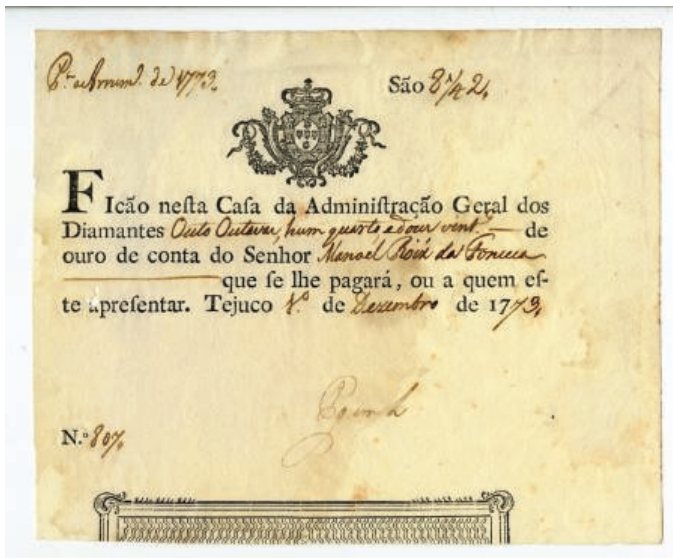 de 1773.
São 8 ¼ 2,
FIcão neſta Caſa da Adminiſtração Geral dos
Diamantes Outo Outavas, hum quarto e dous vint. de
ouro de conta do Senhor Manoel Roiz da Fonceca
que ſe lhe pagará, ou a quem eſ-
te apreſentar. Tejuco 1.º de Dezembro de 1773,
N.º 807,